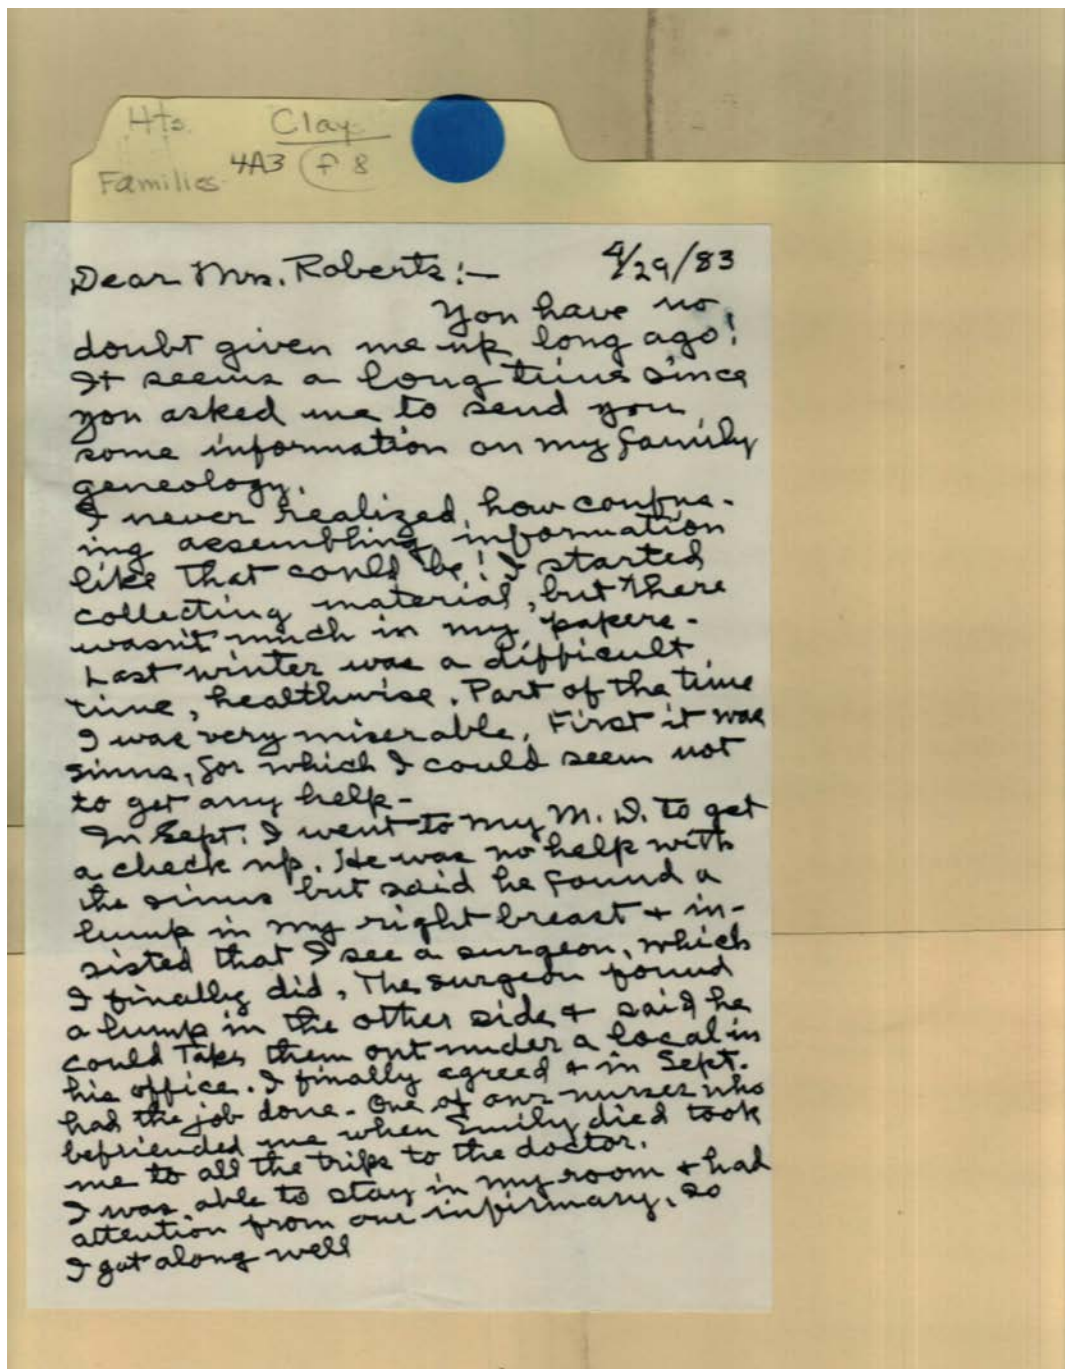 Hts. Clay
4A3 f 8
Families
Dear Mrs. Roberts:- 4/29/83
You have no
doubt given me up long ago!
It seems a long time since
you asked me to send you
some information on my family
geneology.
I never realized, how confus-
ing assembling information
like that could be! I started
collecting material, but there
wasn't much in my papers-
Last winter was a difficult
time, healthwise. Part of the time
I was very miserable. First it was
sinus, for which I could seem not
to get any help-
In Sept. I went to my M.D. to get
a check up. He was no help with
the sinus but said he found a
lump in my right breast + in-
sisted that I see a surgeon, which
I finally did. The surgeon found
a lump in the other side + said he
could take them out under a local in
his office. I finally agreed + in Sept.
had the job done- One of our nurses who
befriended me when Emily died took
me to all the trips to the doctor.
I was able to stay in my room + had
attention from our infirmary, so
I got along well